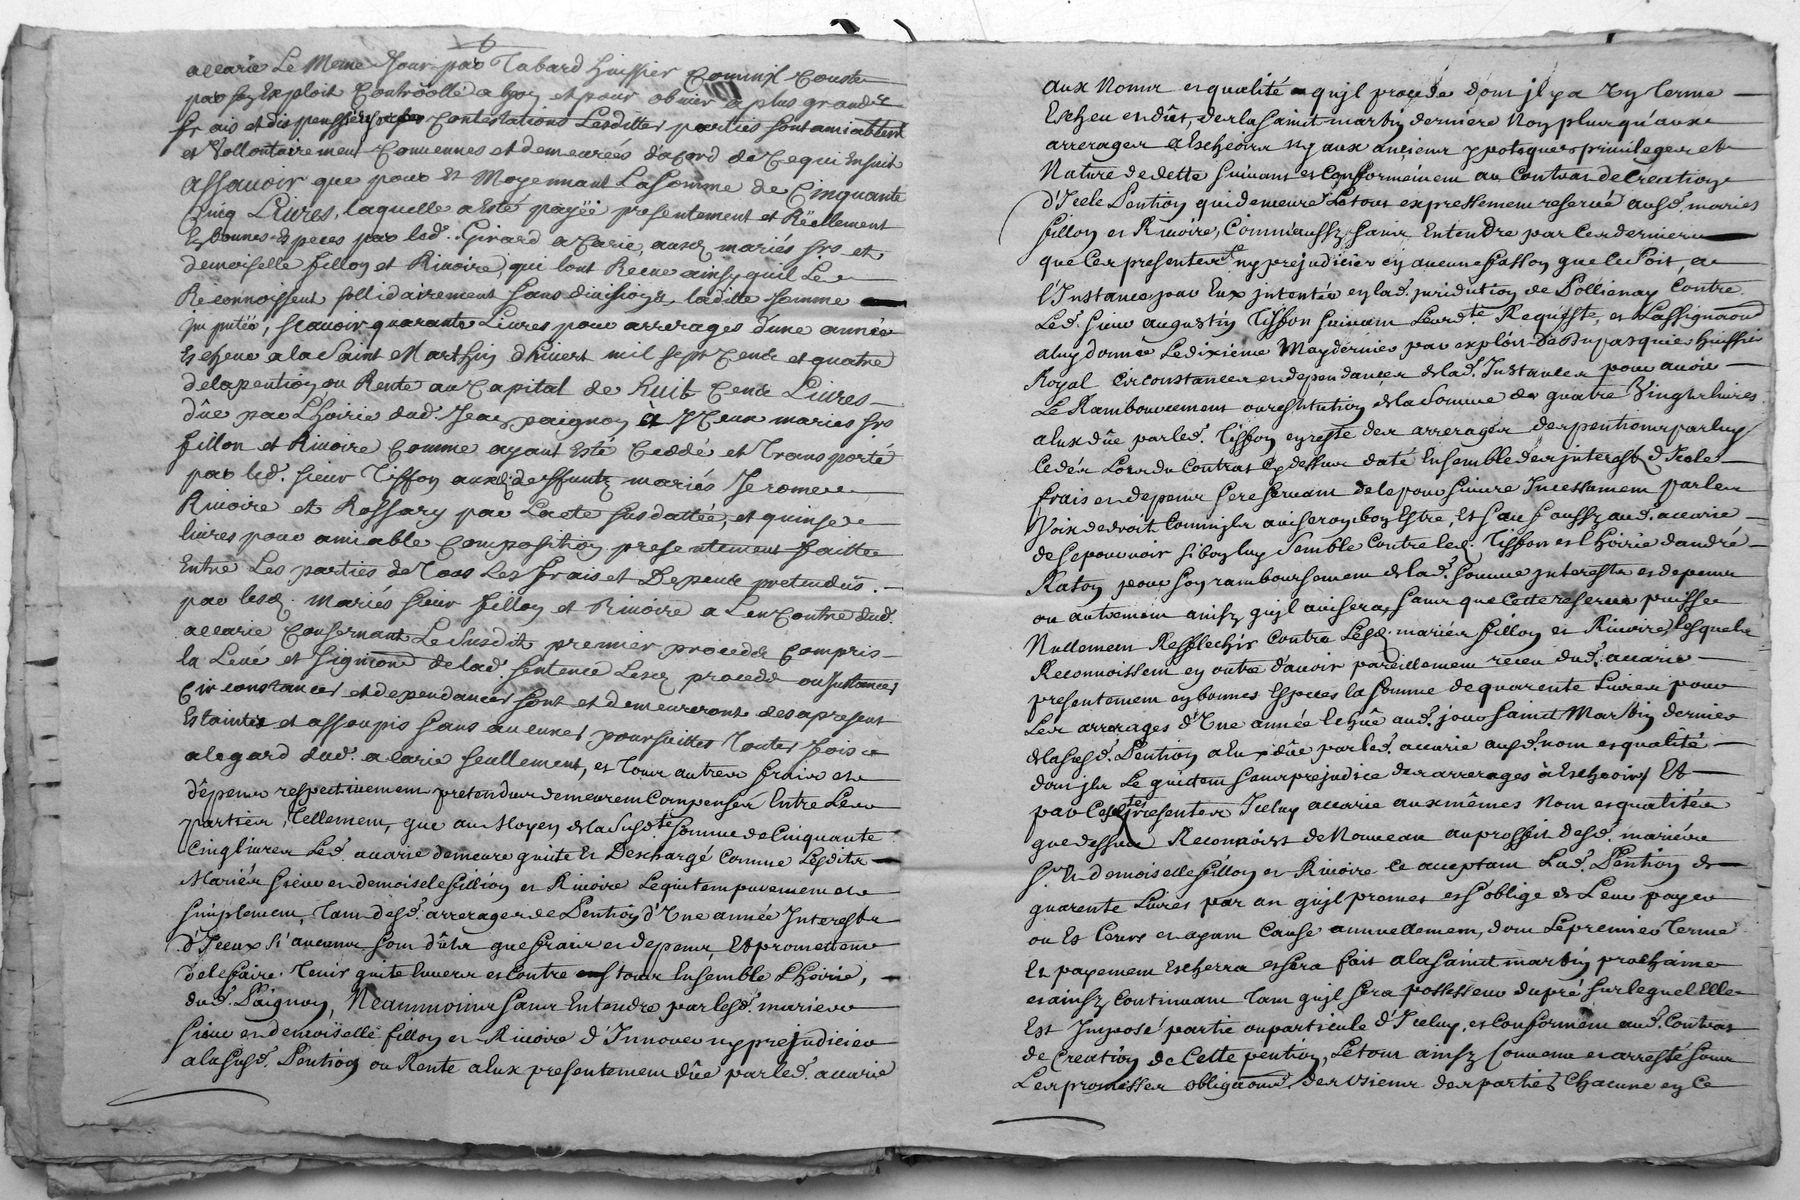 accarie Le Meme Jour par Tabard huissier
par son Exploit Controollé a Lyon et pour obvier a plus grands
frais et dispenses Contestations Lesdittes parties sont amiablement
et Vollontairement Convennes et demeurées dacord de Cequi Ensuit
Assavoir que pour et Moyennant La Somme de Cinquante
Cinq Livres, laquelle a Esté payée presentement et Réellement
En bonnes Especes par led. Girard accarie, ausd. mariés srs et
demoiselle fillon et Rivoire, qui lont Receue ainsy quil Le
Reconnoissent sollidairement sans division, laditte somme
imputéé, scavoir quarante Livres pour arrerages d'une année
Escheue a la Saint Marthin dhivert mil sept Cent et quatre
de la pention ou Rente au Capital de huit Cent Livres
dûe par Lhoirie dud. Jean paignon a Yceux maries srs
fillon et Rivoire Comme ayant Esté Ceddé et Transporté
par led. sieur Tisson ausd. deffuntz mariés Jerome
Rivoire et Rossary par Lacte susdattéé, et quinse
livres pour amiable Composition presentement faitte
Entre Les parties de Tous Les frais et Depends pretendus
par lesd. mariés sieur fillon et Rivoire a Lencontre dud.
accarie Consernant Le Susdit premier procedé Compris
la Levé et signiffion de lad. sentence Lesd. procedé ou Instances
Circonstances et dependances sont et demeureront des apresent
Estaintes et assoupis sans aucunes poursuittes Toutes fois
alegard dud. accarie seullement, et Tous autres frais et
dépens respectivement pretendus demeurent Compensés Entre Les
parties, Tellement, que au Moyen de la Susd.te Somme de Cinquante
Cinq livres Led. accarie demeure quitte Et Deschargé Comme Lesdits
Mariés sieur et demoiselle fillion et Rivoire Lequittent purement et
simplement, Tant desd. arrerages de Pention d'Une année Interests
d'Iceux si aucuns sont dûs que frais et depens, Et promettent
de le faire Tenir quite Envers et Contre tous Ensemble Lhoirie,
dud. Paignon, Neanmoins sans Entendre par lesd. mariés
sieur et demoiselle fillon et Rivoire d'Innover ny prejudicier
a la susd. Pention ou Rente a Eux presentement dûe par led. accarie
aux Noms et qualité quil procede dont il y a Un Terme
Escheu et dût, de la Saint martin derniere Non plus qu'aux
arrerages a Escheoir ny aux anciens ypoteques privileges et
Nature de dette suivant et Conformément au Contrat de Creation
d'Icele Pention qui demeure Letout expressement reservé ausd. mariés
fillon et Rivoire, Comme aussy sans Entendre par Ces derniers
que Ces presentes ny prejudicier en aucune fasson que ce soit, a
l'Instance par Eux intentée en lad. juridiction de Pollienay Contre
Led. sieur augustin Tisson suivant Leurd.te Requeste, et Lassignaon
a luy donnée Ledixiéme May dernier par exploit de Dupasquier huissier
Royal Circonstances et dependances de lad. Instance pour avoir
Le Rambourcement ou restitution de la Somme de quatre Vingts livres
a Eux dûe par led. Tisson en reste des arrerages des pentions par luy
Cedés Lors du Contrat Cy dessus daté Ensemble des interests d'Icele
frais et depens se reservant de le poursuivre Incessamment par les
Voix de droit Comme ils aviseront bon Estre, Et sauf aussy aud. accarie
de se pourvoir si bon luy Semble Contre led. Tisson et lhoirie dandré
Raton pour son rambourcement de lad. somme interests et depens
ou autrement ainsy quil avisera, sans que Cette reserve puisse
Nullement Refflechir Contre Lesd. mariés fillon et Rivoire, lesquels
Reconnoissent en outre d'avoir pareillement receu dud. accarie
presentement en bonnes Especes la Somme de quarente Livres pour
Les arrerages d'Une année Echûe aud. jour saint Martin dernier
de la susd. Pention a Eux dûe par led. accarie ausd. nom et qualité
dont ils Le quittent sans prejudice des arrerages à Escheoir, Et
par Ces presentes Iceluy accarie aux mêmes Nom et qualitées
que dessus Reconnoist de Nouveau au proffit desd. mariés
sr. Et demoiselle fillon et Rivoire ce acceptant Lad. Pention de
quarente Livres par an quil promet et s'oblige de Leur payer
ou Es Leurs et ayant Cause annuellement, dont Le premier Terme
Et payement Escherra et sera fait a la Saint martin prochaine
et ainsy Continuant Tant quil sera possesseur du pré sur lequel Elle
Est Imposé partie ou particule d'Iceluy, et Conforment aud. Contrat
de Creation de Cette pention, Letout ainsy Convenu et arresté sous
Les promesses obligaons des Usieurs des parties Chacune en Ce